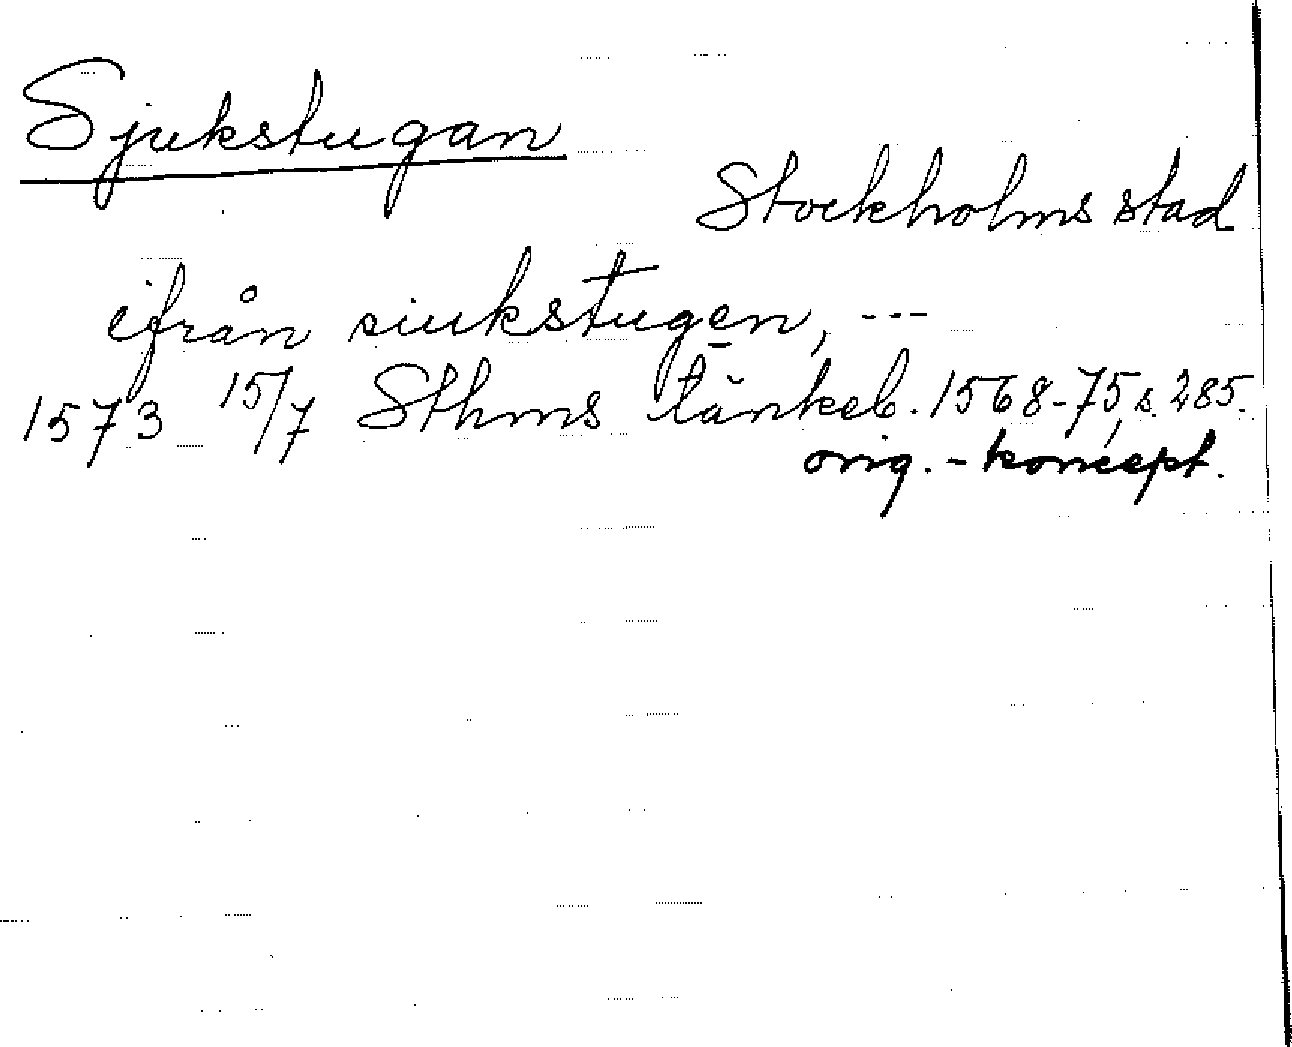 Sjukstugan
Stockholms stad
ifrån siukstugen, ---
1573 15/7 Sthms tänkeb. 1568-75, s. 285.
orig. - koncept.